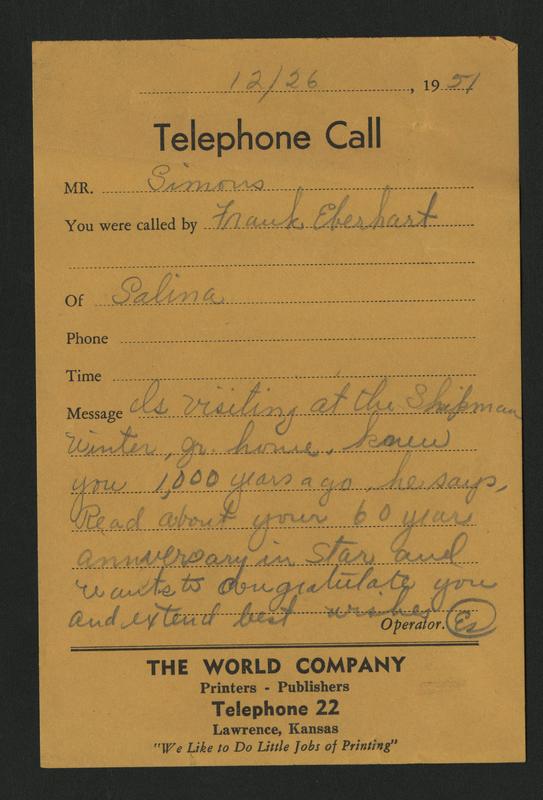 12/26, 1951
Telephone Call
MR. Simons
You were called by Frank Eberhart
Of Salina
Phone
Time
Message Is visiting at the Shipman
Winter, jr. home. knew
you 1,000 years ago, he says,
Read about your 60 years
anniversary in Star and
wants to congratulate you
and extend best wishes
Operator. Es
THE WORLD COMPANY
Printers - Publishers
Telephone 22
Lawrence, Kansas
"We Like to Do Little Jobs of Printing"